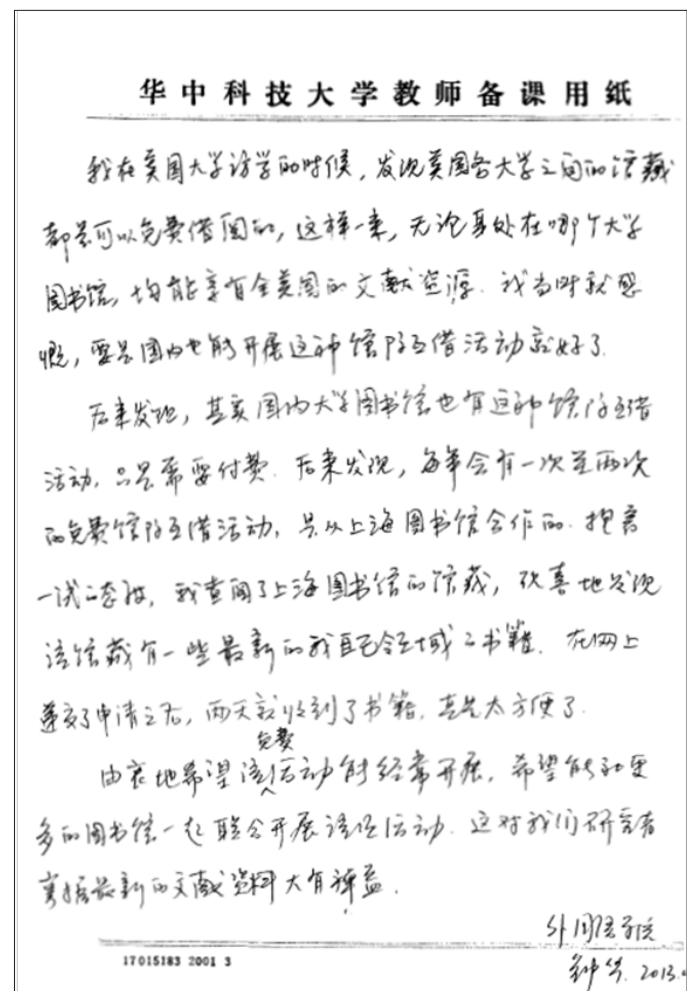 华中科技大学教师备课用纸
我在英国大学访学的时候，发现英国各大学之间的馆藏
都是可以免费借阅的，这样一来，无论身处在哪个大学
图书馆，均能享有全英国的文献资源．我当时就感
慨，要是国内也能开展这种馆际互借活动就好了．
后来发现，其实国内大学图书馆也有这种馆际互借
活动，只是需要付费．后来发现，每年会有一次至两次
的免费馆际互借活动，是从上海图书馆合作的．抱着
一试的态度，我查阅了上海图书馆的馆藏，欣喜地发现
该馆藏有一些最新的我自己领域之书籍．在网上
递交了申请之后，两天就收到了书籍，真是太方便了．
免费
由衷地希望该活动能经常开展，希望能和更
多的图书馆一起联合开展该活动．这对我们研究者
掌握最新的文献资料大有裨益．
外国语学院
17015183 2001 3
2013.